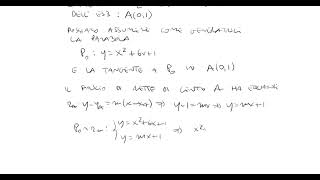 DELL'ES3 : A(0,1)
POSSIAMO ASSUMERE COME GENERATRICI
LA PARABOLA
P₀ : y = x² + 6x + 1
E LA TANGENTE A P₀ IN A(0,1)
IL FASCIO DI RETTE DI CENTRO A HA EQUAZIONE
y - yₐ = m(x - xₐ) ⇒ y - 1 = mx ⇒ y = mx + 1
y = x² + 6x + 1
y = mx + 1
⇒ x²